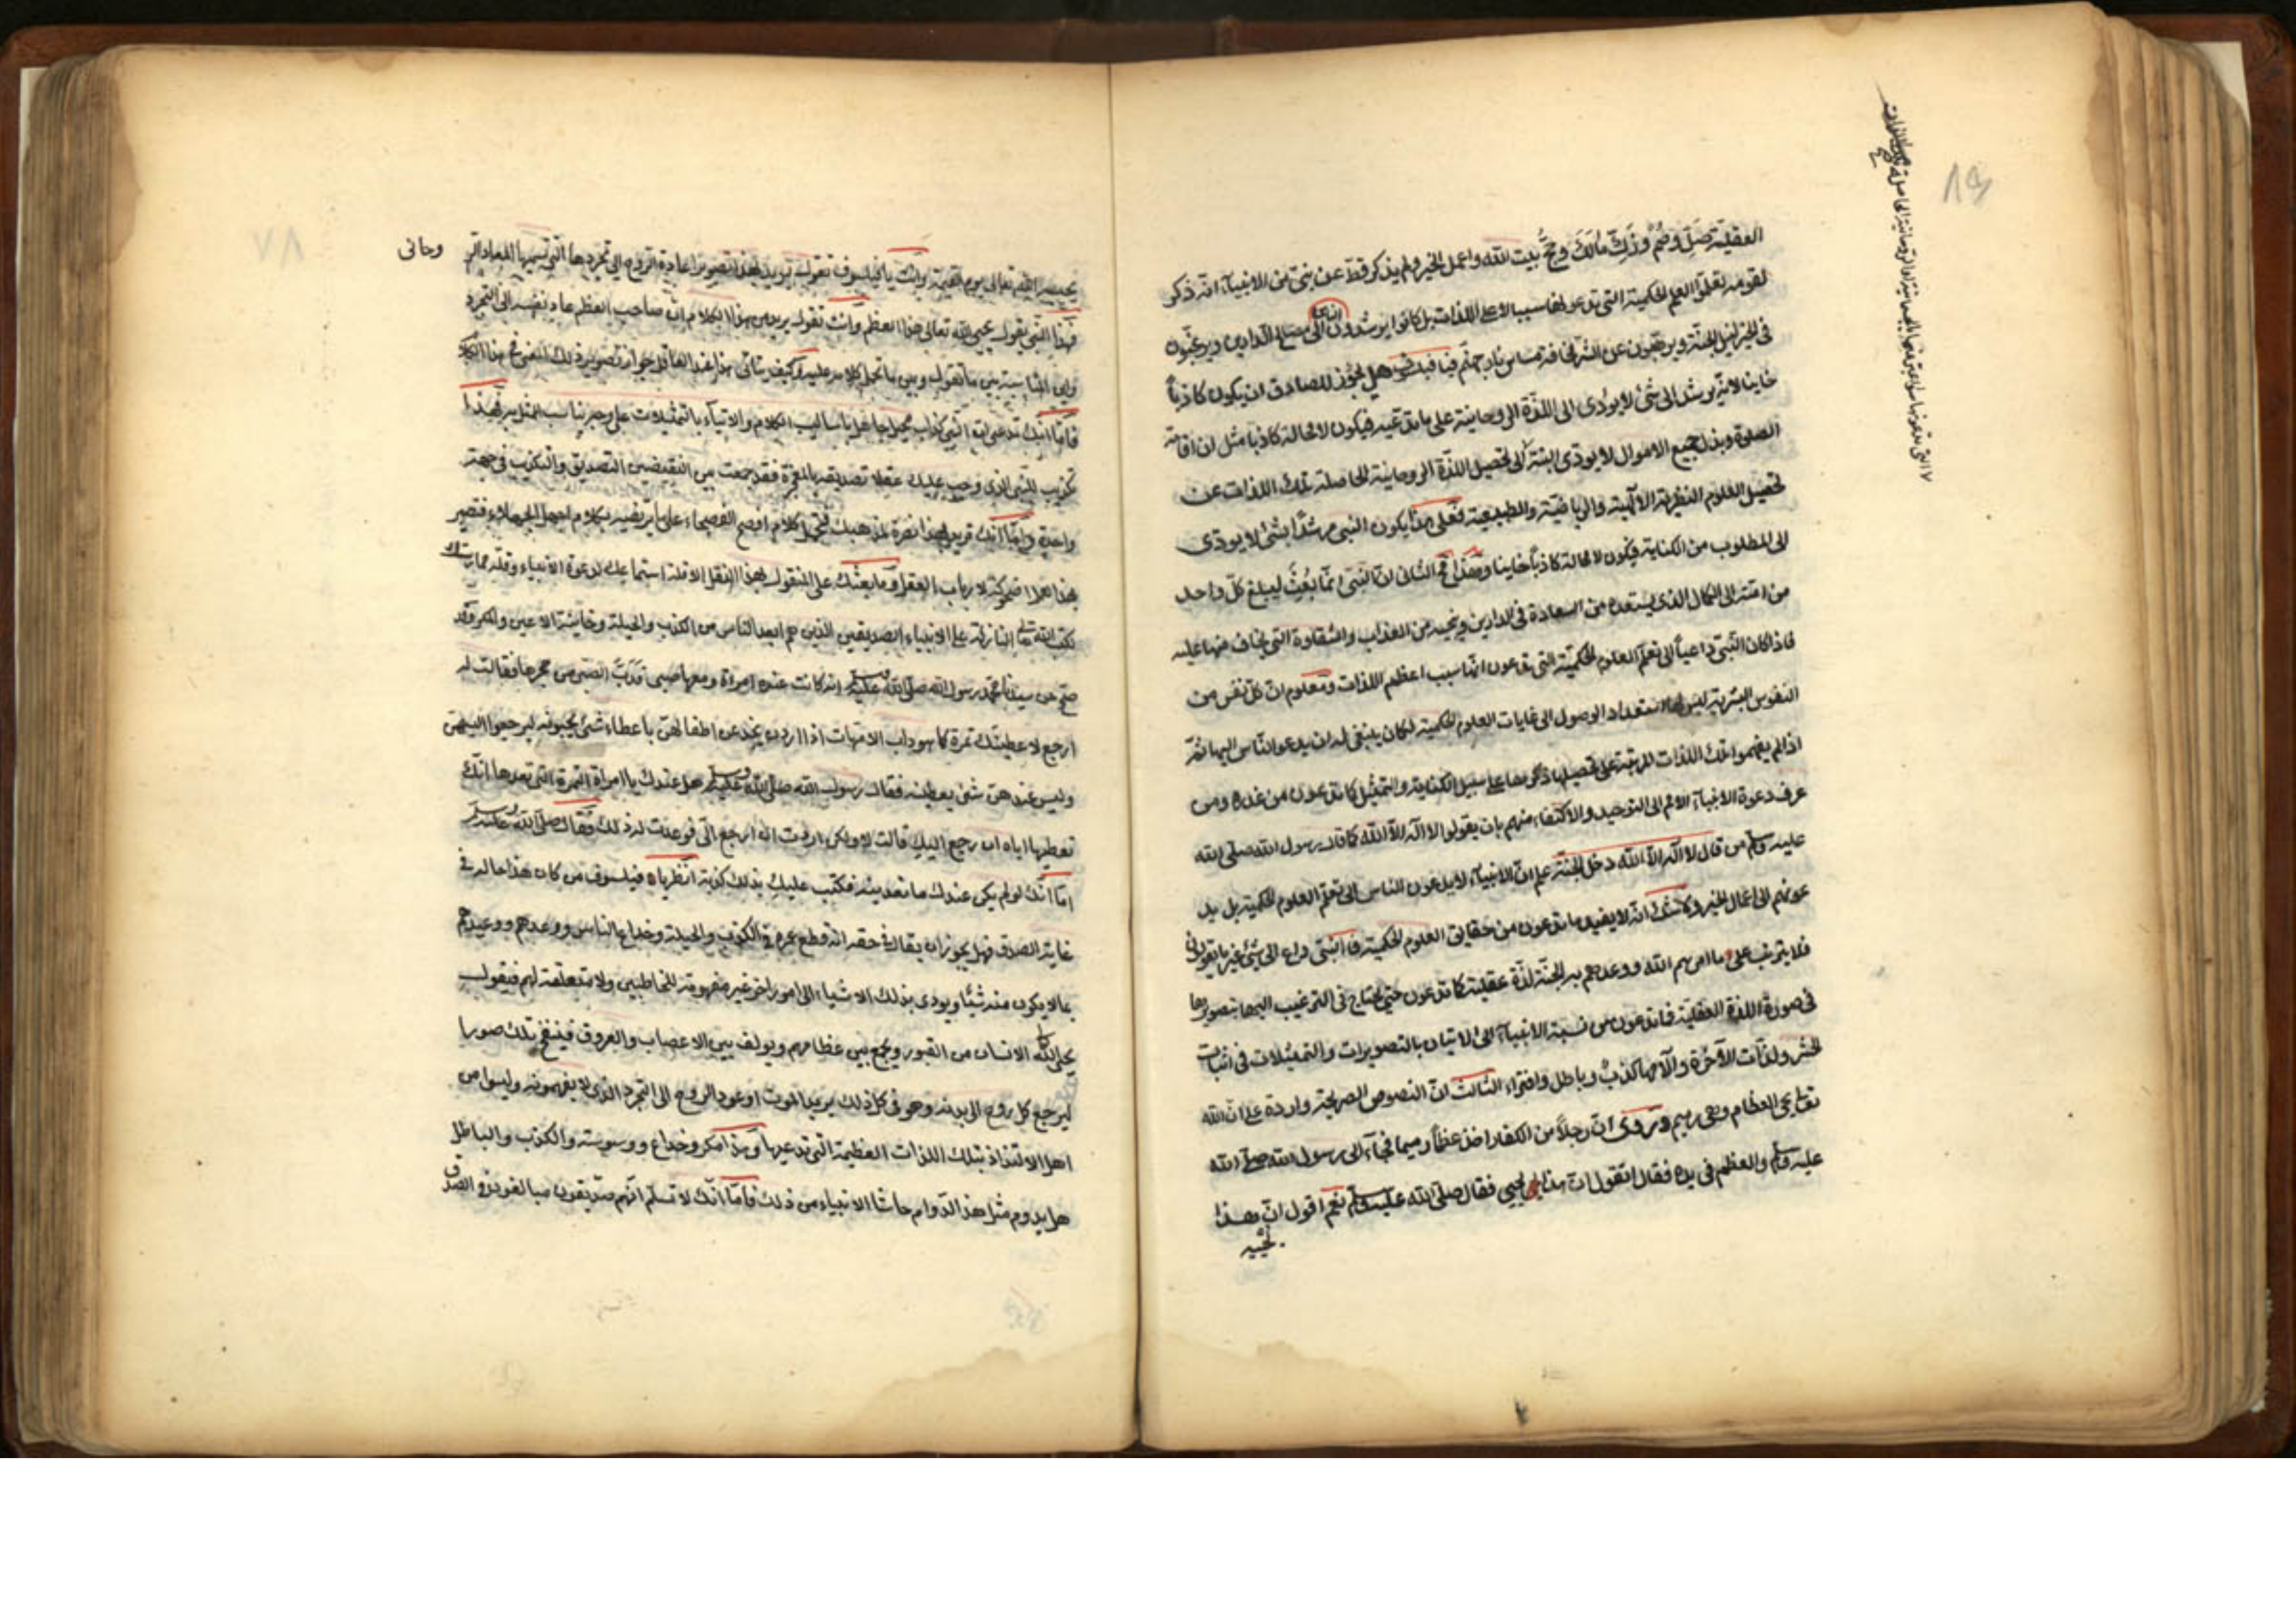 العقلية صَلِّ وصُمْ وزَكِّ مالَكَ وحُجَّ بيت الله واعمل الخير ولم يذكر قط عن نبي من الانبياء انه ذكر
لقومه تعلموا العلم الحكمية التي تدعو لها سببا لاعلى اللذات بل كانوا يرشدون الناس الى مصالح الدارين ويرغبون
في الخير لنيل الجنة ويرهبون عن الشر مخافة مساس نار جهنم فيا فيلسوف هل يجوز للصادق ان يكون كاذباً
خاينا لانه يرشد الى شئ لا يودى الى اللذة الروحانية على ما تدعيه فيكون لا محالة كاذبا مثل ان اقامة
الصلوة وبذل جميع الاموال لا يودى البتة الى تحصيل اللذة الروحانية الحاصلة تلك اللذات عن
تحصيل العلوم النظرية الالهية والرياضية والطبيعية فعلى هذا يكون النبي مرشداً بشئ لا يودى
الى المطلوب من الكناية فيكون لا محالة كاذباً خاينا وهذا مح الثاني ان النبي انما بُعِثَ ليبلغ كل واحد
من امته الى الكمال الذي يستعده من السعادة في الدارين وينجيه من العذاب والشقاوة التي يخاف منها عليه
فاذا كان النبي داعياً الى تعلم العلوم الحكمية التي تدعون انها سبب اعظم اللذات ومعلوم ان كل نفس من
النفوس البشرية ليس لها استعداد الوصول الى غايات العلوم الحكمية لكان ينبغي له ان يدعو الناس اليها ثم
اذا لم يفهموا تلك اللذات المرتبة على تحصيلها ذكرها على سبيل الكناية والتمثيل كما تدعون من غده ومن
عرف دعوة الانبياء الامم الى التوحيد والاكتفاء منهم بان يقولوا لا اله الا الله كما قال رسول الله صلى الله
عليه وسلم من قال لا اله الا الله دخل الجنة علم ان الانبياء لا يدعون الناس الى تعلم العلوم الحكمية بل يد
عونهم الى اعمال الخير ولا شك انه لا يفيد ما تدعون من حقائق العلوم الحكمية فالنبي داع الى شئ غير ما تقولون
فلا يترتب على ما امرهم الله ووعدهم به الجنة لذة عقلية كما تدعون حتى يحتاج في الترغيب اليها بتصويرها
في صورة اللذة العقلية فما تدعون من نسبة الانبياء الى الاتيان بالتصويرات والتمثيلات في اثبات
الحشر ولذات الآخرة والآمها كذب وباطل وافتراء الثالث ان النصوص الصريحة واردة على ان الله
تعالى يحيي العظام وهى رميم وتروى ان رجلاً من الكفار اخذ عظماً رميما فجاء الى رسول الله صلى الله
عليه وسلم والعظم في يده فقال اتقول ان هذا يحيي فقال صلى الله عليه وسلم نعم اقول ان هذا
يحييه
يحييه الله تعالى يوم القيمة وانت يا فيلسوف تقول يريد بهذا تصوير اعادة الروح الى تجردها التي تسميها المعاد الر
وحانى
فهذا النبي يقول يحيي الله تعالى هذا العظم وانت تقول يريد من هذا الكلام ان صاحب العظم عاد نفسه الى التجرد
واين المناسبة بين ما تقول وبين ما تحمل كلامه عليه وكيف يتاتى
فاما انك تدعى ان النبي كذاب محيل جاهل باساليب الكلام والاتيان بالتمثيلات على وجه يناسب الممثل به فهذا
تكذيب للنبي الذى وجب عليك عقلا تصديقه بالمعجزة فقد جمعت بين النقيضين التصديق والتكذيب في جهة
واحدة واما انك تريد بهذا نصرة لمذهبك فتحمل كلام افصح الفصحاء على ما يرتضيه بكلام اجهل الجهلاء فتصير
بهذا العمل اضحوكة لارباب العقول وما بعثك على المنقول بهذا النقل الا قلة استماعك لدعوة الانبياء وقلة ممارستك
بكتب الله تعالى النازلة على الانبياء الصديقين الذين هم ابعد الناس من الكذب والحيلة وخاينة الاعين والمكر وقد
صح عن سيدنا محمد رسول الله صلى الله عليه وسلم انه كانت عنده امراة ومعها صبى فدَبَّ الصبى من حجرها فقالت له
ارجع لاعطيتك تمرة كما هو داب الامهات اذا اردن يخدعن اطفالهن باعطاء شئ يحبونه ليرجعوا اليهن
وليس عندهن شئ يعطينه فقال رسول الله صلى الله عليه وسلم هل عندك يا امراة التمرة التي تعدها انك
تعطيها اياه ان رجع اليك قالت لا ولكن اردت انه ارجع الى فوعدت له ذلك فقال صلى الله عليه وسلم
اما انك لو لم يكن عندك ما تعدينه فكتب عليك بذلك كذبة انظر يا فيلسوف من كان هذا حاله في
غاية الصدق فهل يجوز ان يقال في حقه انه قطع عمره في الكذب والحيلة وخداع الناس ووعدهم ووعيدهم
بما لا يكون منه شيئا ويودى بذلك الاشياء الى امور اخر غير مفهومة للمخاطبين ولا متعلقة لهم فيقول
يحيي الله الانسان من القبور ويجمع بين عظامهم ويولف بين الاعصاب والعروق فينفخ تلك صورا
ليرجع كل روح الى بدنه وهو في كل ذلك يريد الموت او عود الروح الى التجرد الذى لا يفهمونه وليسوا من
اهل الالتذاذ بتلك اللذات العظيمة التي تدعيها وهذا مكر وخداع ووسوسته والكذب والباطل
هل يدوم مثل هذا الدوام حاشا الانبياء من ذلك فاما انك لا تسلم انهم صديقون مبالغون في الصدق